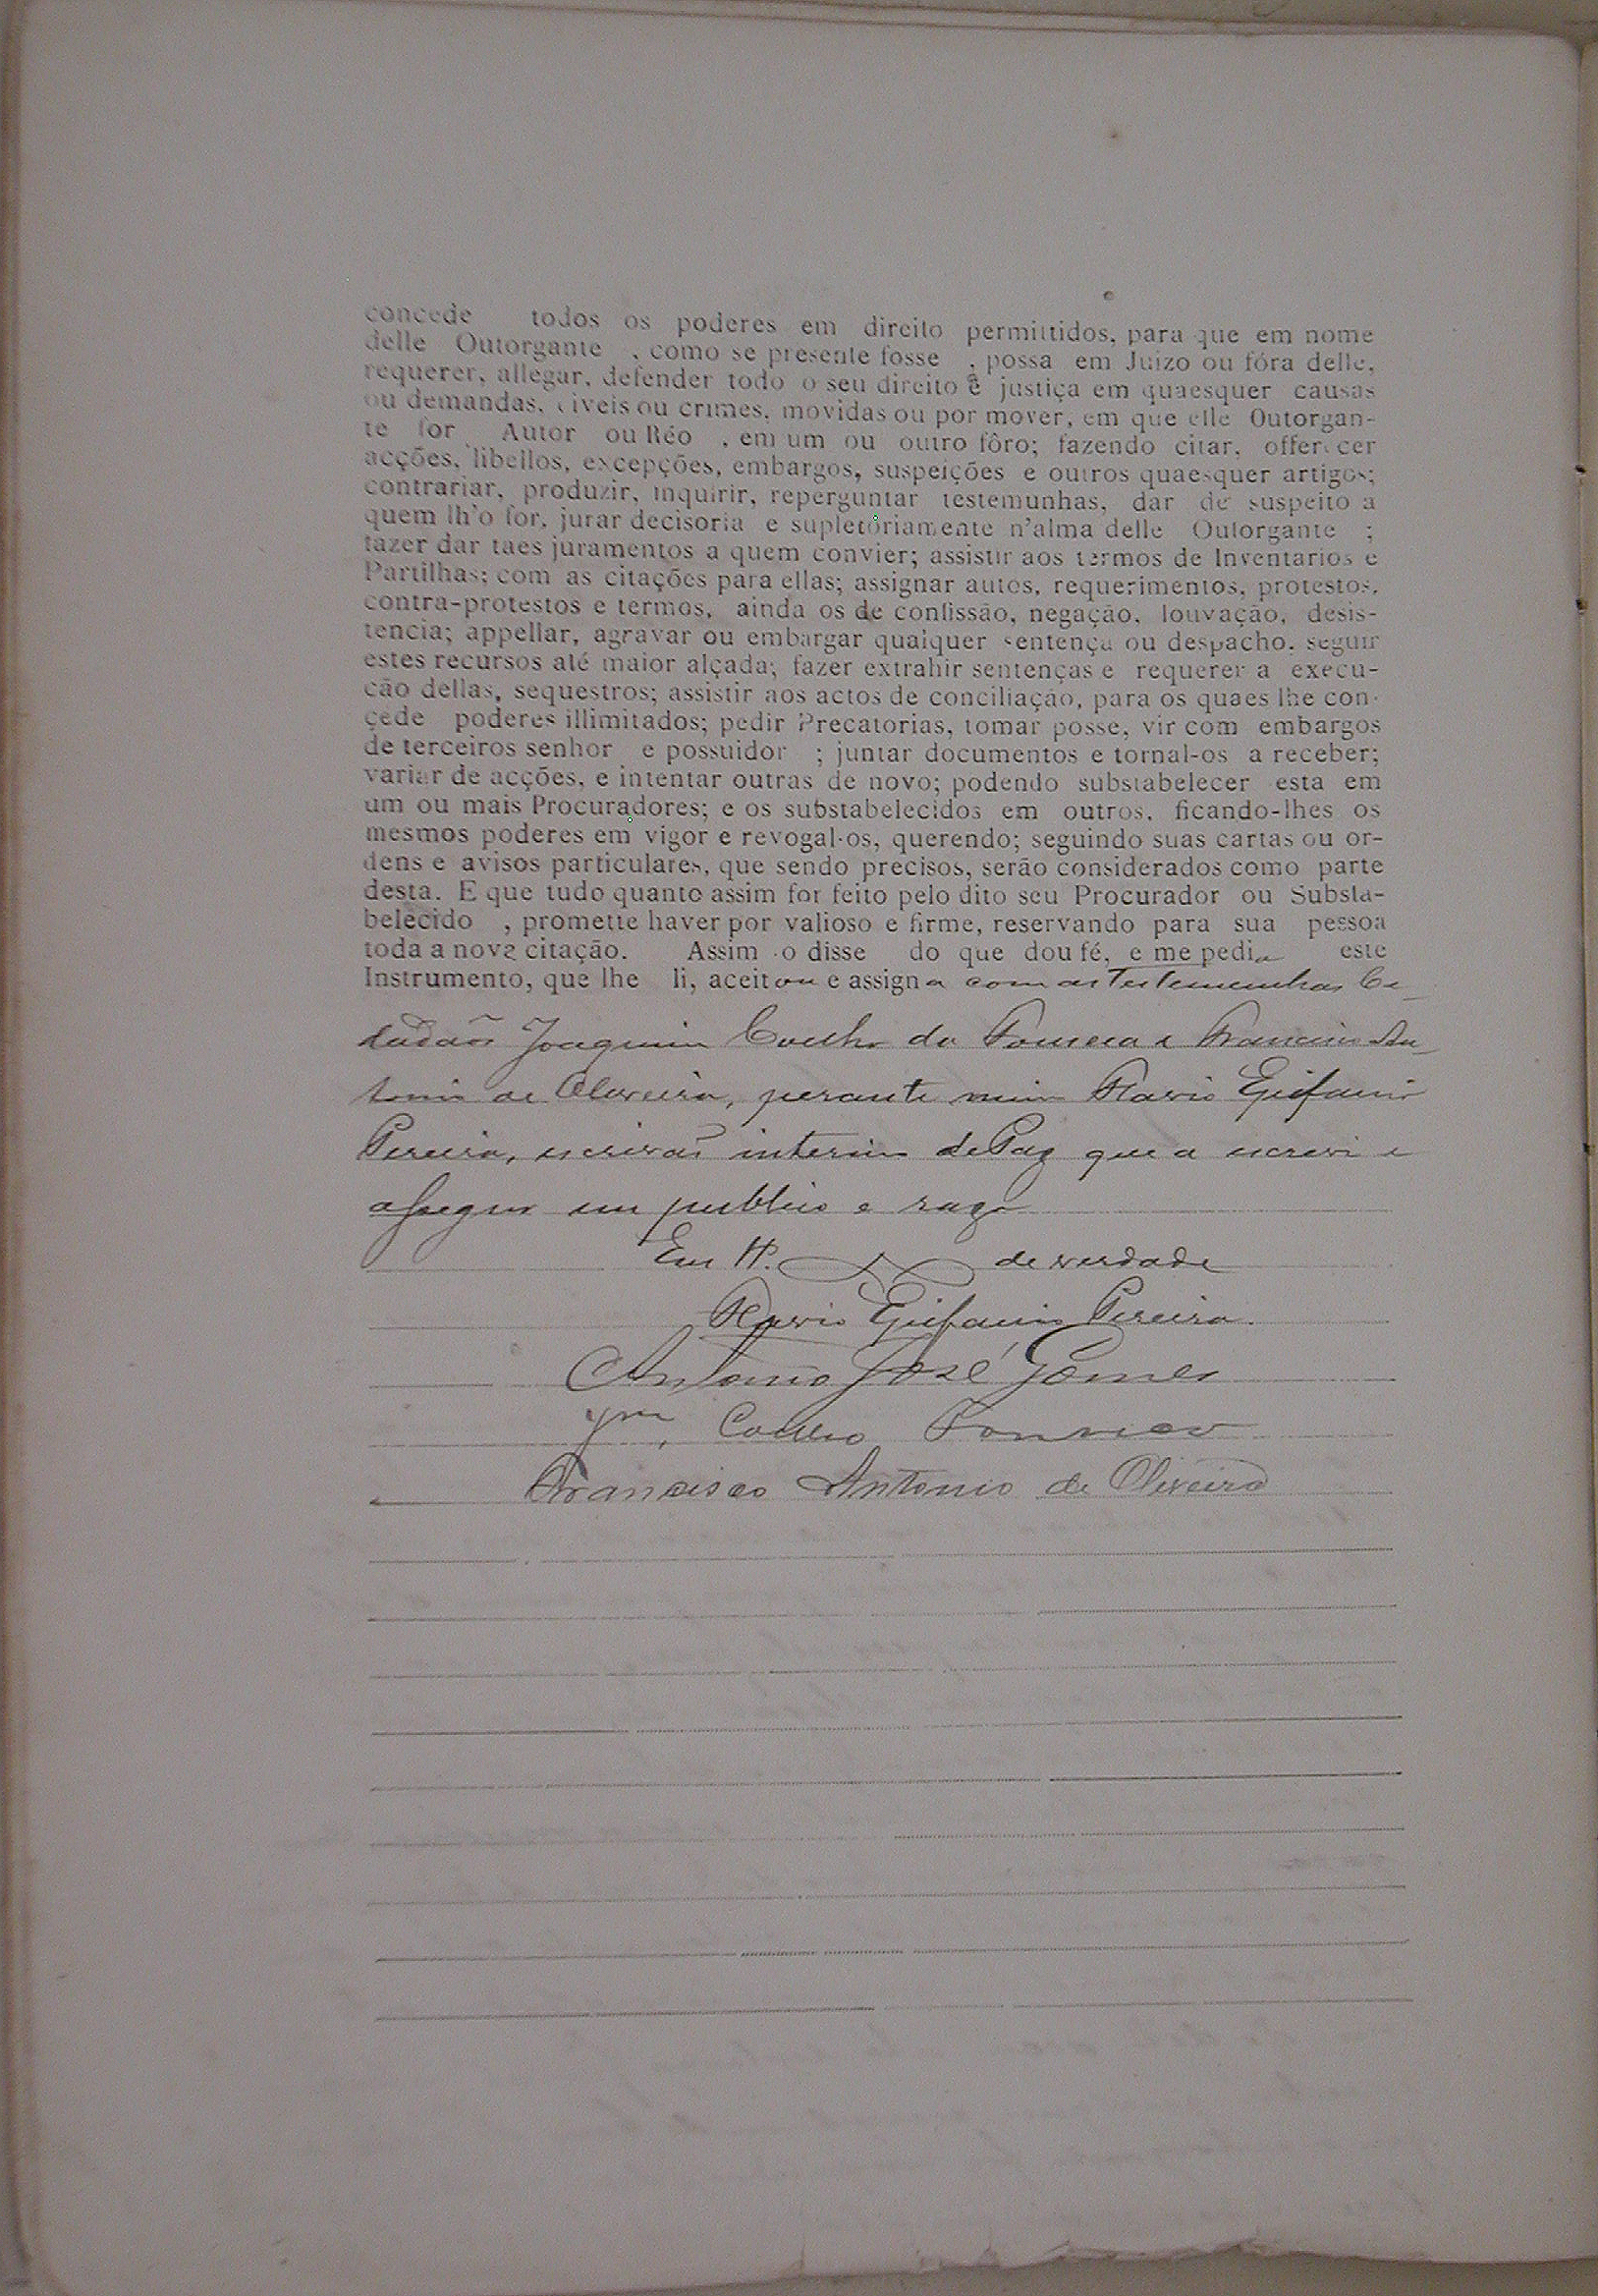 concede todos os poderes em direito permittidos, para que em nome
delle Outorgante , como se presente fosse , possa em Juizo ou fóra delle,
requerer, allegar, defender todo o seu direito e justiça em quaesquer causas
ou demandas, civeis ou crimes, movidas ou por mover, em que elle Outorgan-
te for Autor ou Réo , em um ou outro fôro; fazendo citar, offerecer
acções, libellos, excepções, embargos, suspeições e outros quaesquer artigos;
contrariar, produzir, inquirir, reperguntar testemunhas, dar de suspeito a
quem lh'o for, jurar decisoria e supletoriamente n'alma delle Outorgante ;
fazer dar taes juramentos a quem convier; assistir aos termos de Inventarios e
Partilhas; com as citações para ellas; assignar autos, requerimentos, protestos,
contra-protestos e termos, ainda os de confissão, negação, louvação, desis-
tencia; appellar, agravar ou embargar qualquer sentença ou despacho. seguir
estes recursos até maior alçada; fazer extrahir sentenças e requerer a execu-
ção dellas, sequestros; assistir aos actos de conciliação, para os quaes lhe con-
cede poderes illimitados; pedir Precatorias, tomar posse, vir com embargos
de terceiros senhor e possuidor ; juntar documentos e tornal-os a receber;
variar de acções, e intentar outras de novo; podendo substabelecer esta em
um ou mais Procuradores; e os substabelecidos em outros, ficando-lhes os
mesmos poderes em vigor e revogal-os, querendo; seguindo suas cartas ou or-
dens e avisos particulares, que sendo precisos, serão considerados como parte
desta. E que tudo quanto assim for feito pelo dito seu Procurador ou Substa-
belecido , promette haver por valioso e firme, reservando para sua pessoa
toda a nova citação. Assim o disse do que dou fé, e me pedia este
Instrumento, que lhe li, aceitou e assigna com as Testemunhas Ci-
dadãos Joaquim Coelho da Fonseca e Francisco An-
tonio de Oliveira, perante mim Flavio Epifanio
Pereira, escrivão interino de Paz que a escrevi e
assigno em publico e raso
Em tº. de verdade
Flavio Epifanio Pereira.
Antonio José Gomes
Jm. Coelho Fonseca
Francisco Antonio de Oliveira